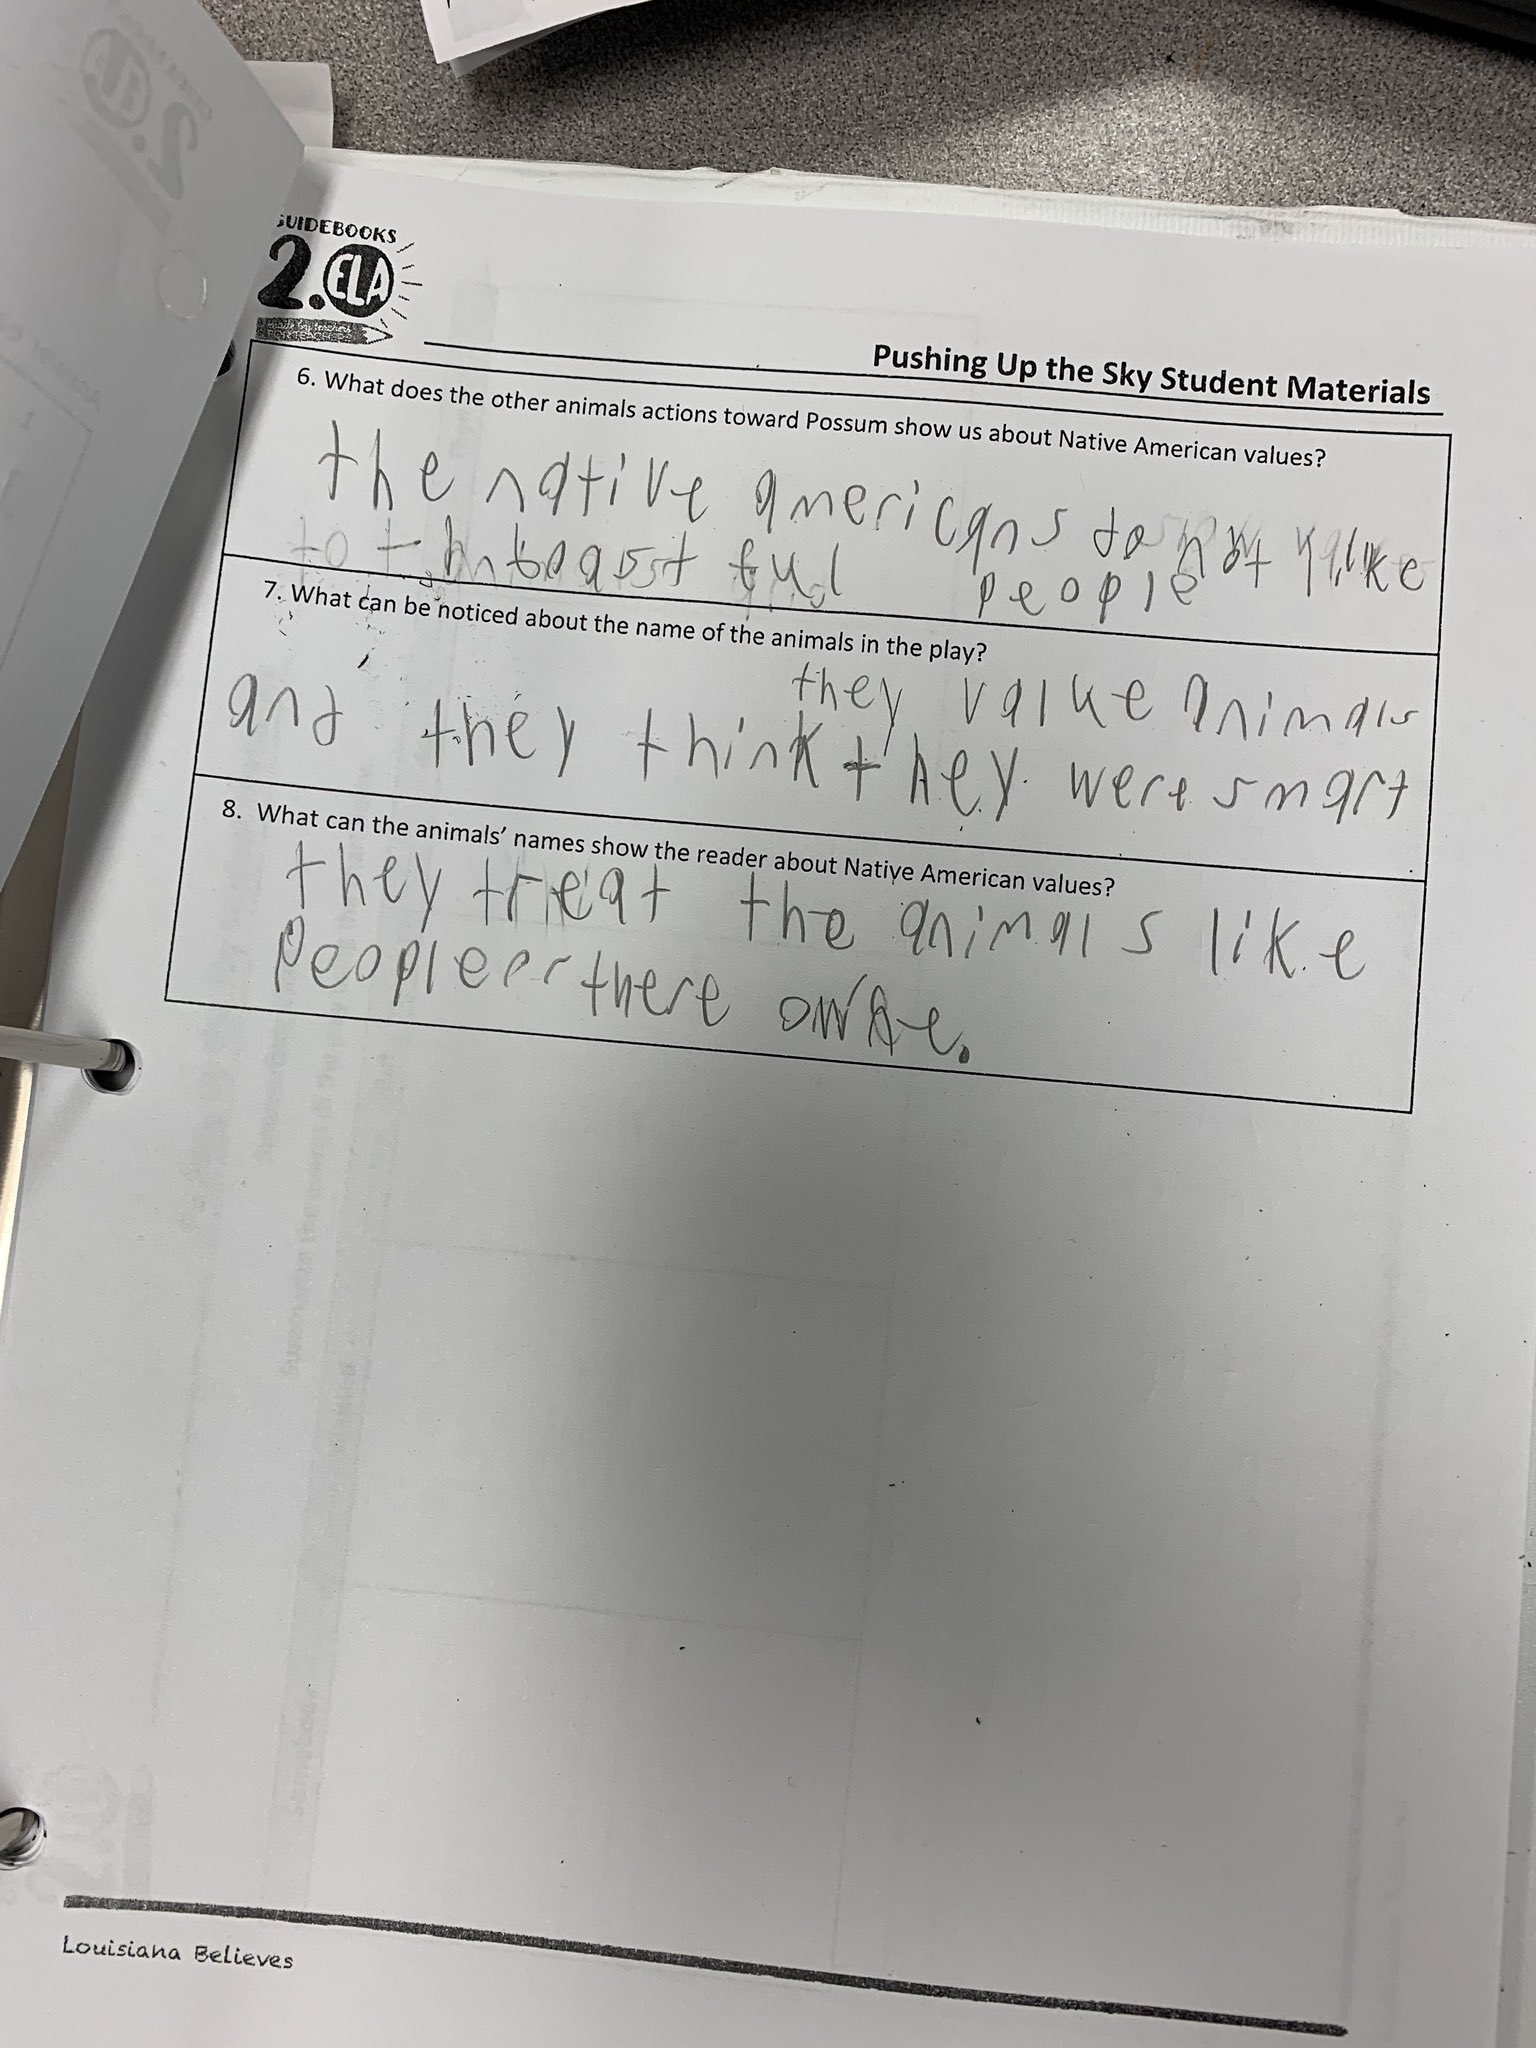 GUIDEBOOKS
2.ELA
made by teachers
Pushing Up the Sky Student Materials
6. What does the other animals actions toward Possum show us about Native American values?
the native americans do not like
boastful people
7. What can be noticed about the name of the animals in the play?
they value animals
and they think they were smart
8. What can the animals' names show the reader about Native American values?
they treat the animals like
people er there owne.
Louisiana Believes